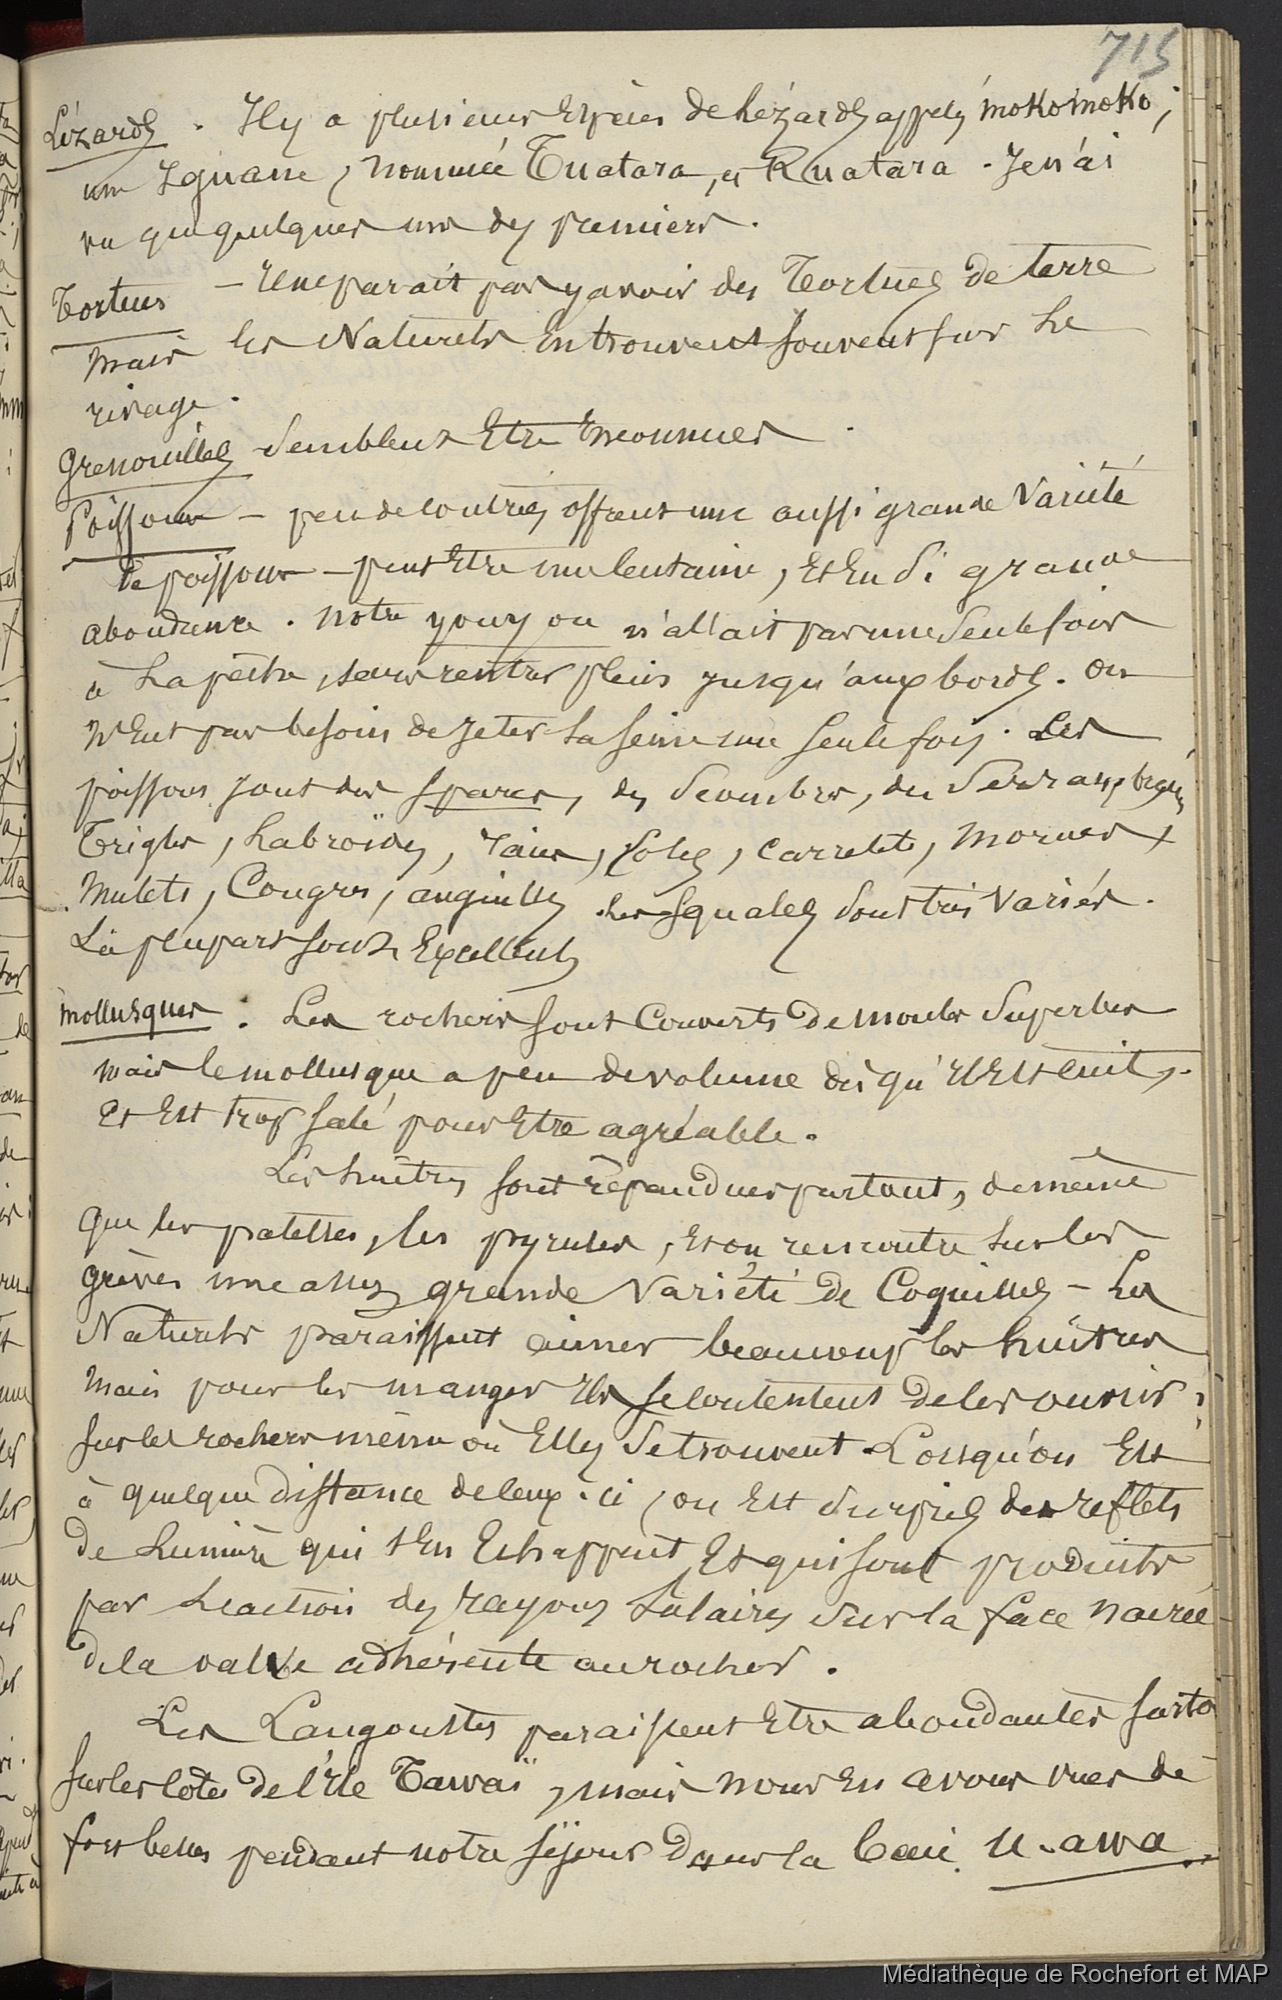 715
Lézards . Il y a plusieurs Espèces de Lézards appelés mokomoko ;
une Iguane , nommée Tuatara, et Ruatara . Je n'ai
vu que quelques uns des premiers .
Tortues – Il ne parait pas y avoir des Tortues de terre
mais les Naturels En trouvent souvent sur le
rivage .
Grenouilles Semblent Etre Inconnues .
Poissons – peu de contrées offrent une aussi grande Variété
de poissons – peut Etre une Centaine , Et En Si grande
abondance . notre youyou n'allait pas une Seule fois
à La pêche , sans rentrer plein jusqu'aux bords . on
n'Eut pas besoin de Jeter La Seine une Seule fois . Les
poissons sont des spares, des Scombres, des Serrans,
Trigles , Labroïdes, raies, soles , carrelets , Morues
Mulets , Congres , anguilles . Les Squales Sont très Variés .
La plupart sont Excellents
mollusques : Les rochers sont Couverts de moules Superbes
mais le mollusque a peu de volume dès qu'Il Est cuit ,
Et Est trop salé pour Etre agréable .
Les huîtres sont répandues partout , de même
que les patelles , les pyrules , Et on rencontre sur les
grèves une assez grande Variété de Coquilles – Les
Naturels paraissent aimer beaucoup les huîtres
Mais pour les manger Ils se contentent de les ouvrir
sur les rochers même où Elles Se trouvent . Lorsqu'on Est
à quelque distance de ceux-ci , on Est Surpris des reflets
de Lumière qui s'En Echappent Et qui sont produits
par L'action des rayons Solaires Sur la face nacrée
de la valve adhérente au rocher .
Les Langoustes paraissent Etre abondantes surto
sur les côtes de l'Ile Tawaï , mais nous En avons vues de
fort belles pendant notre séjour Dans la baie awa .
Médiathèque de Rochefort et MAP